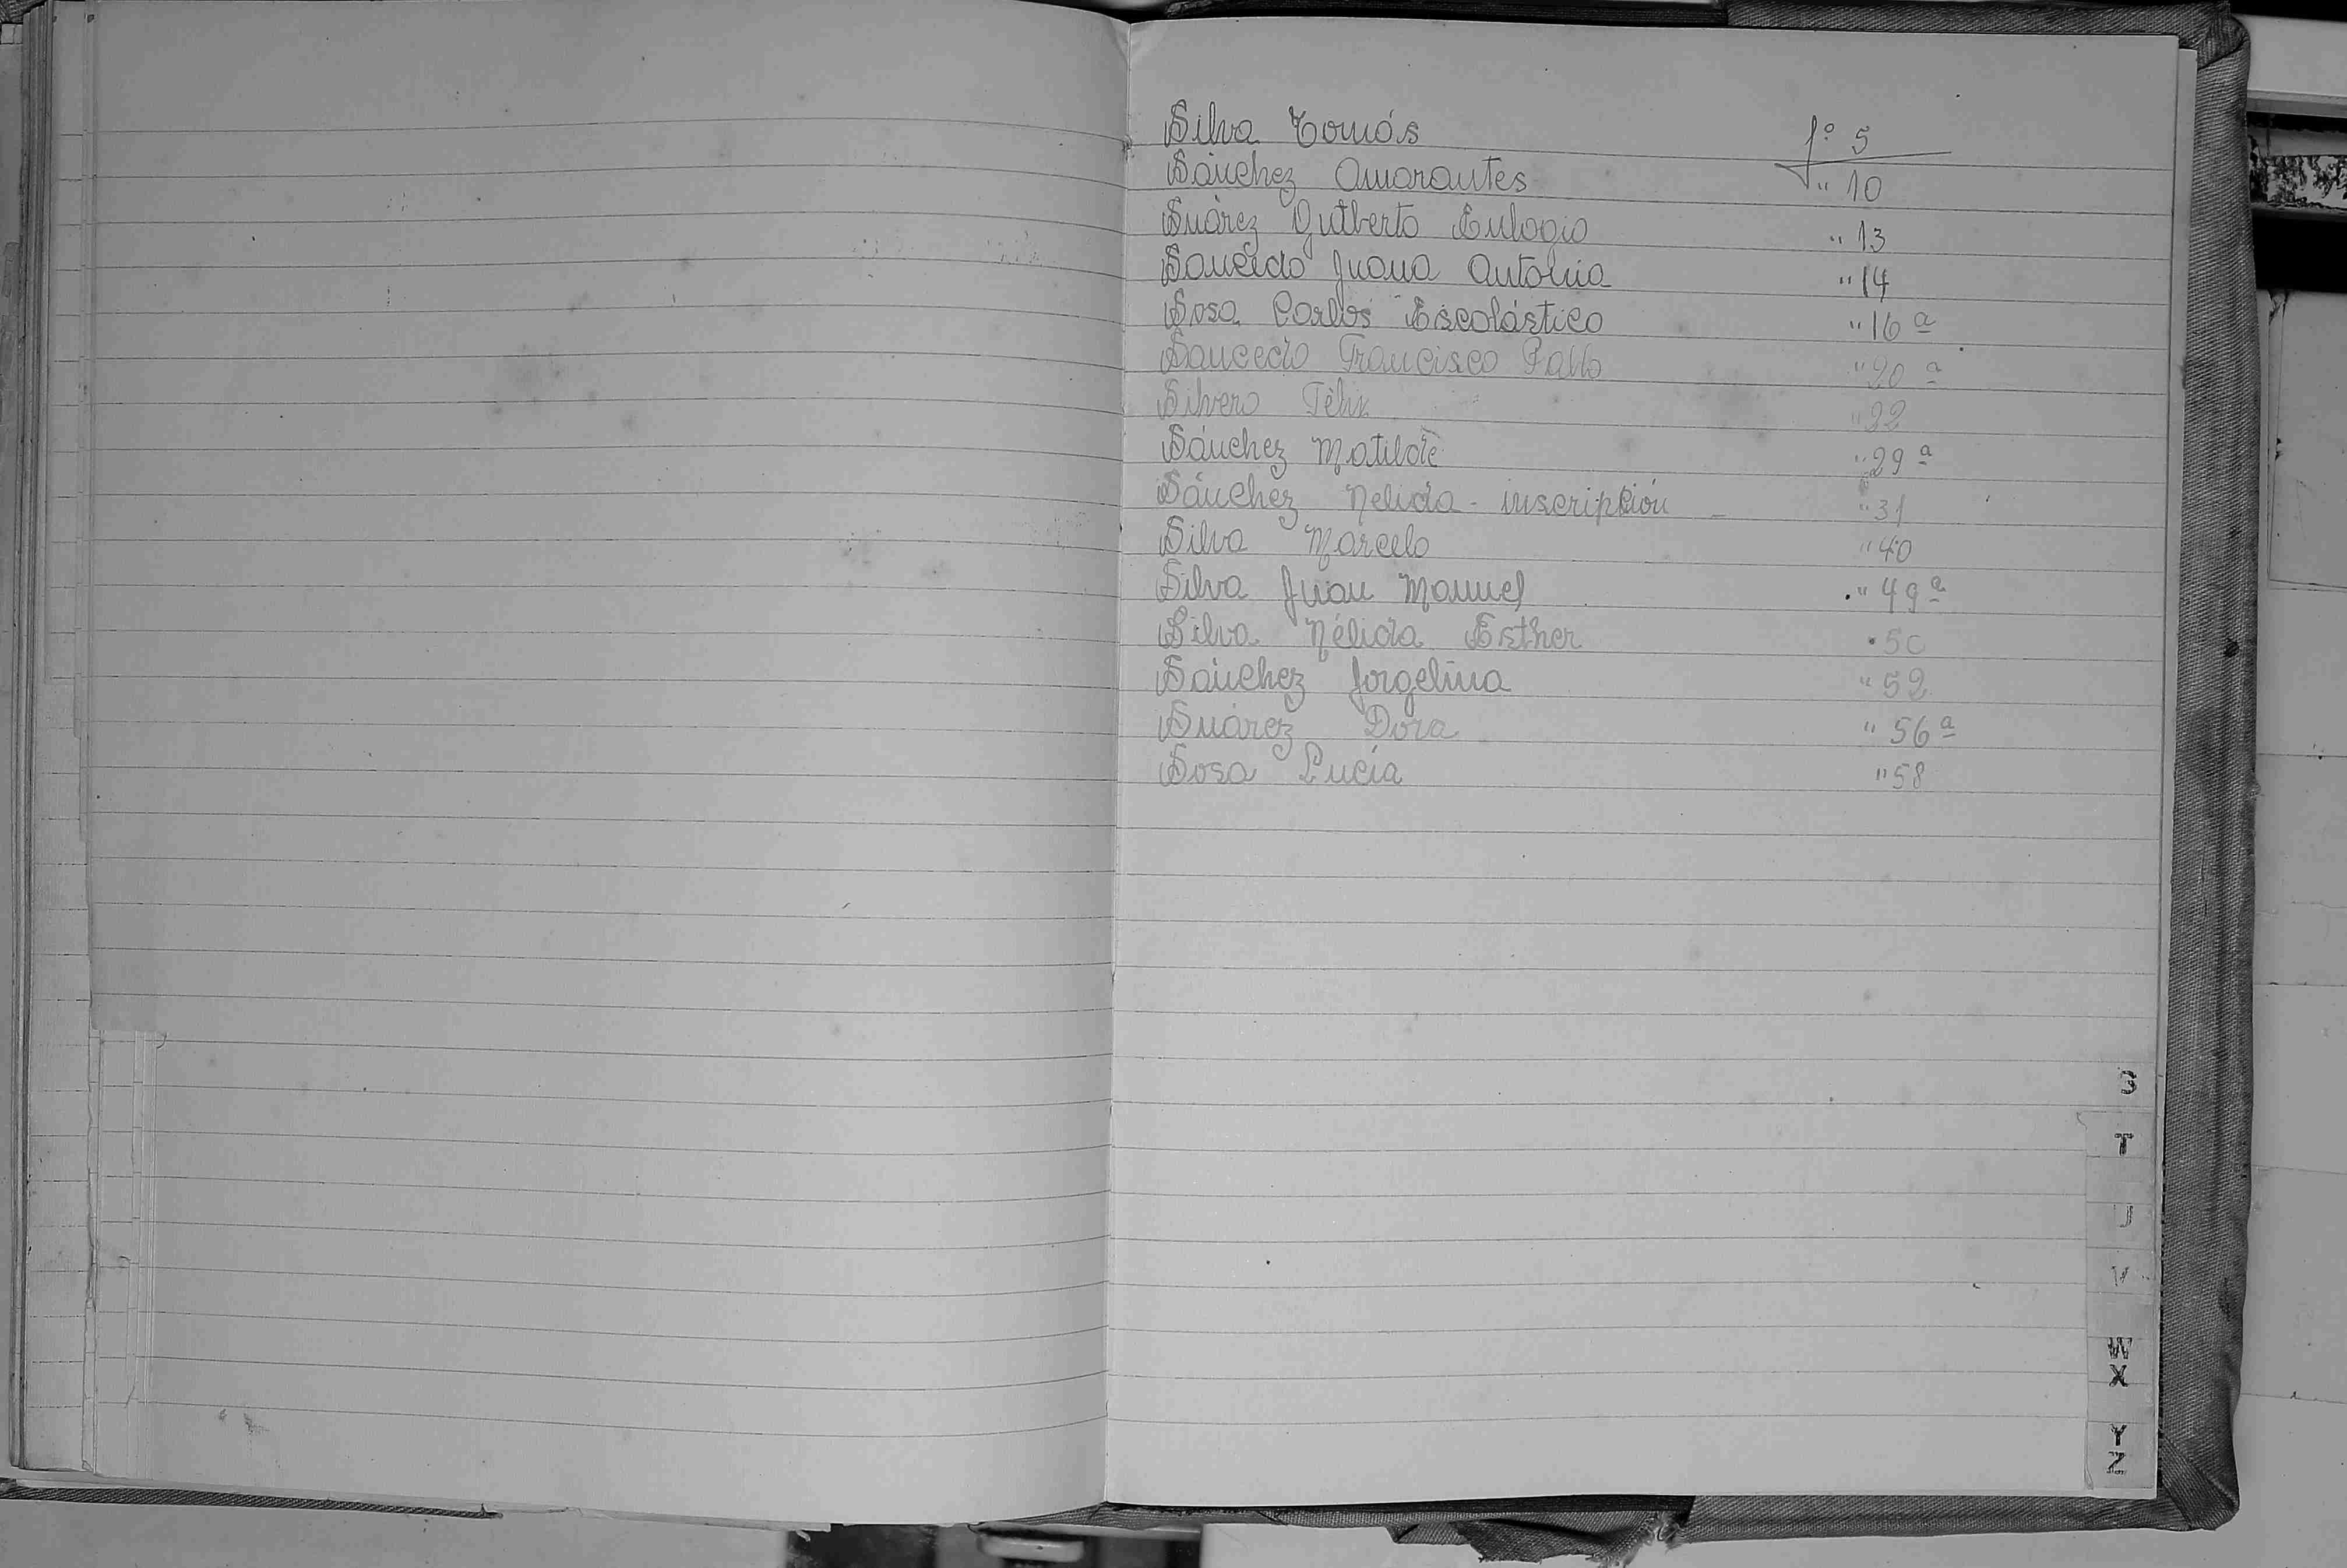 Silva Tomás fº 5
Sánchez Amarantes " 10
Suárez Gutberto Eulogio " 13
Saucedo Juana Antonia " 14
Sosa Carlos Escolástico " 16 a
Saucedo Francisco Pablo " 20 a
Silvero Félix " 22
Sánchez Matilde " 29 a
Sánchez Nelida - inscripción - " 31
Silva Marcelo " 40
Silva Juan Manuel " 49 a
Silva Nélida Esther " 50
Sánchez Jorgelina " 52
Suárez Dora " 56 a
Sosa Lucía " 58
S
T
U
V
W
X
Y
Z